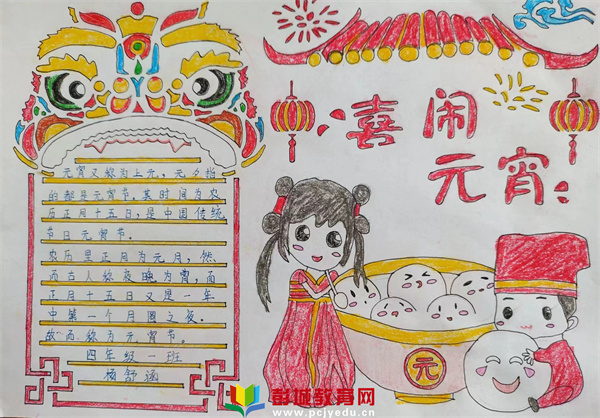 喜闹
元宵
元宵又称为上元,元夕指
的都是元宵节。其时间为农
历正月十五日,是中国传统
节日元宵节。
农历是正月为元月,然
而古人称夜晚为宵,而
正月十五日又是一年
中第一个月圆之夜。
故而称为元宵节。
四年级一班
杨舒涵
元
彭城教育网
www.pcjyedu.cn